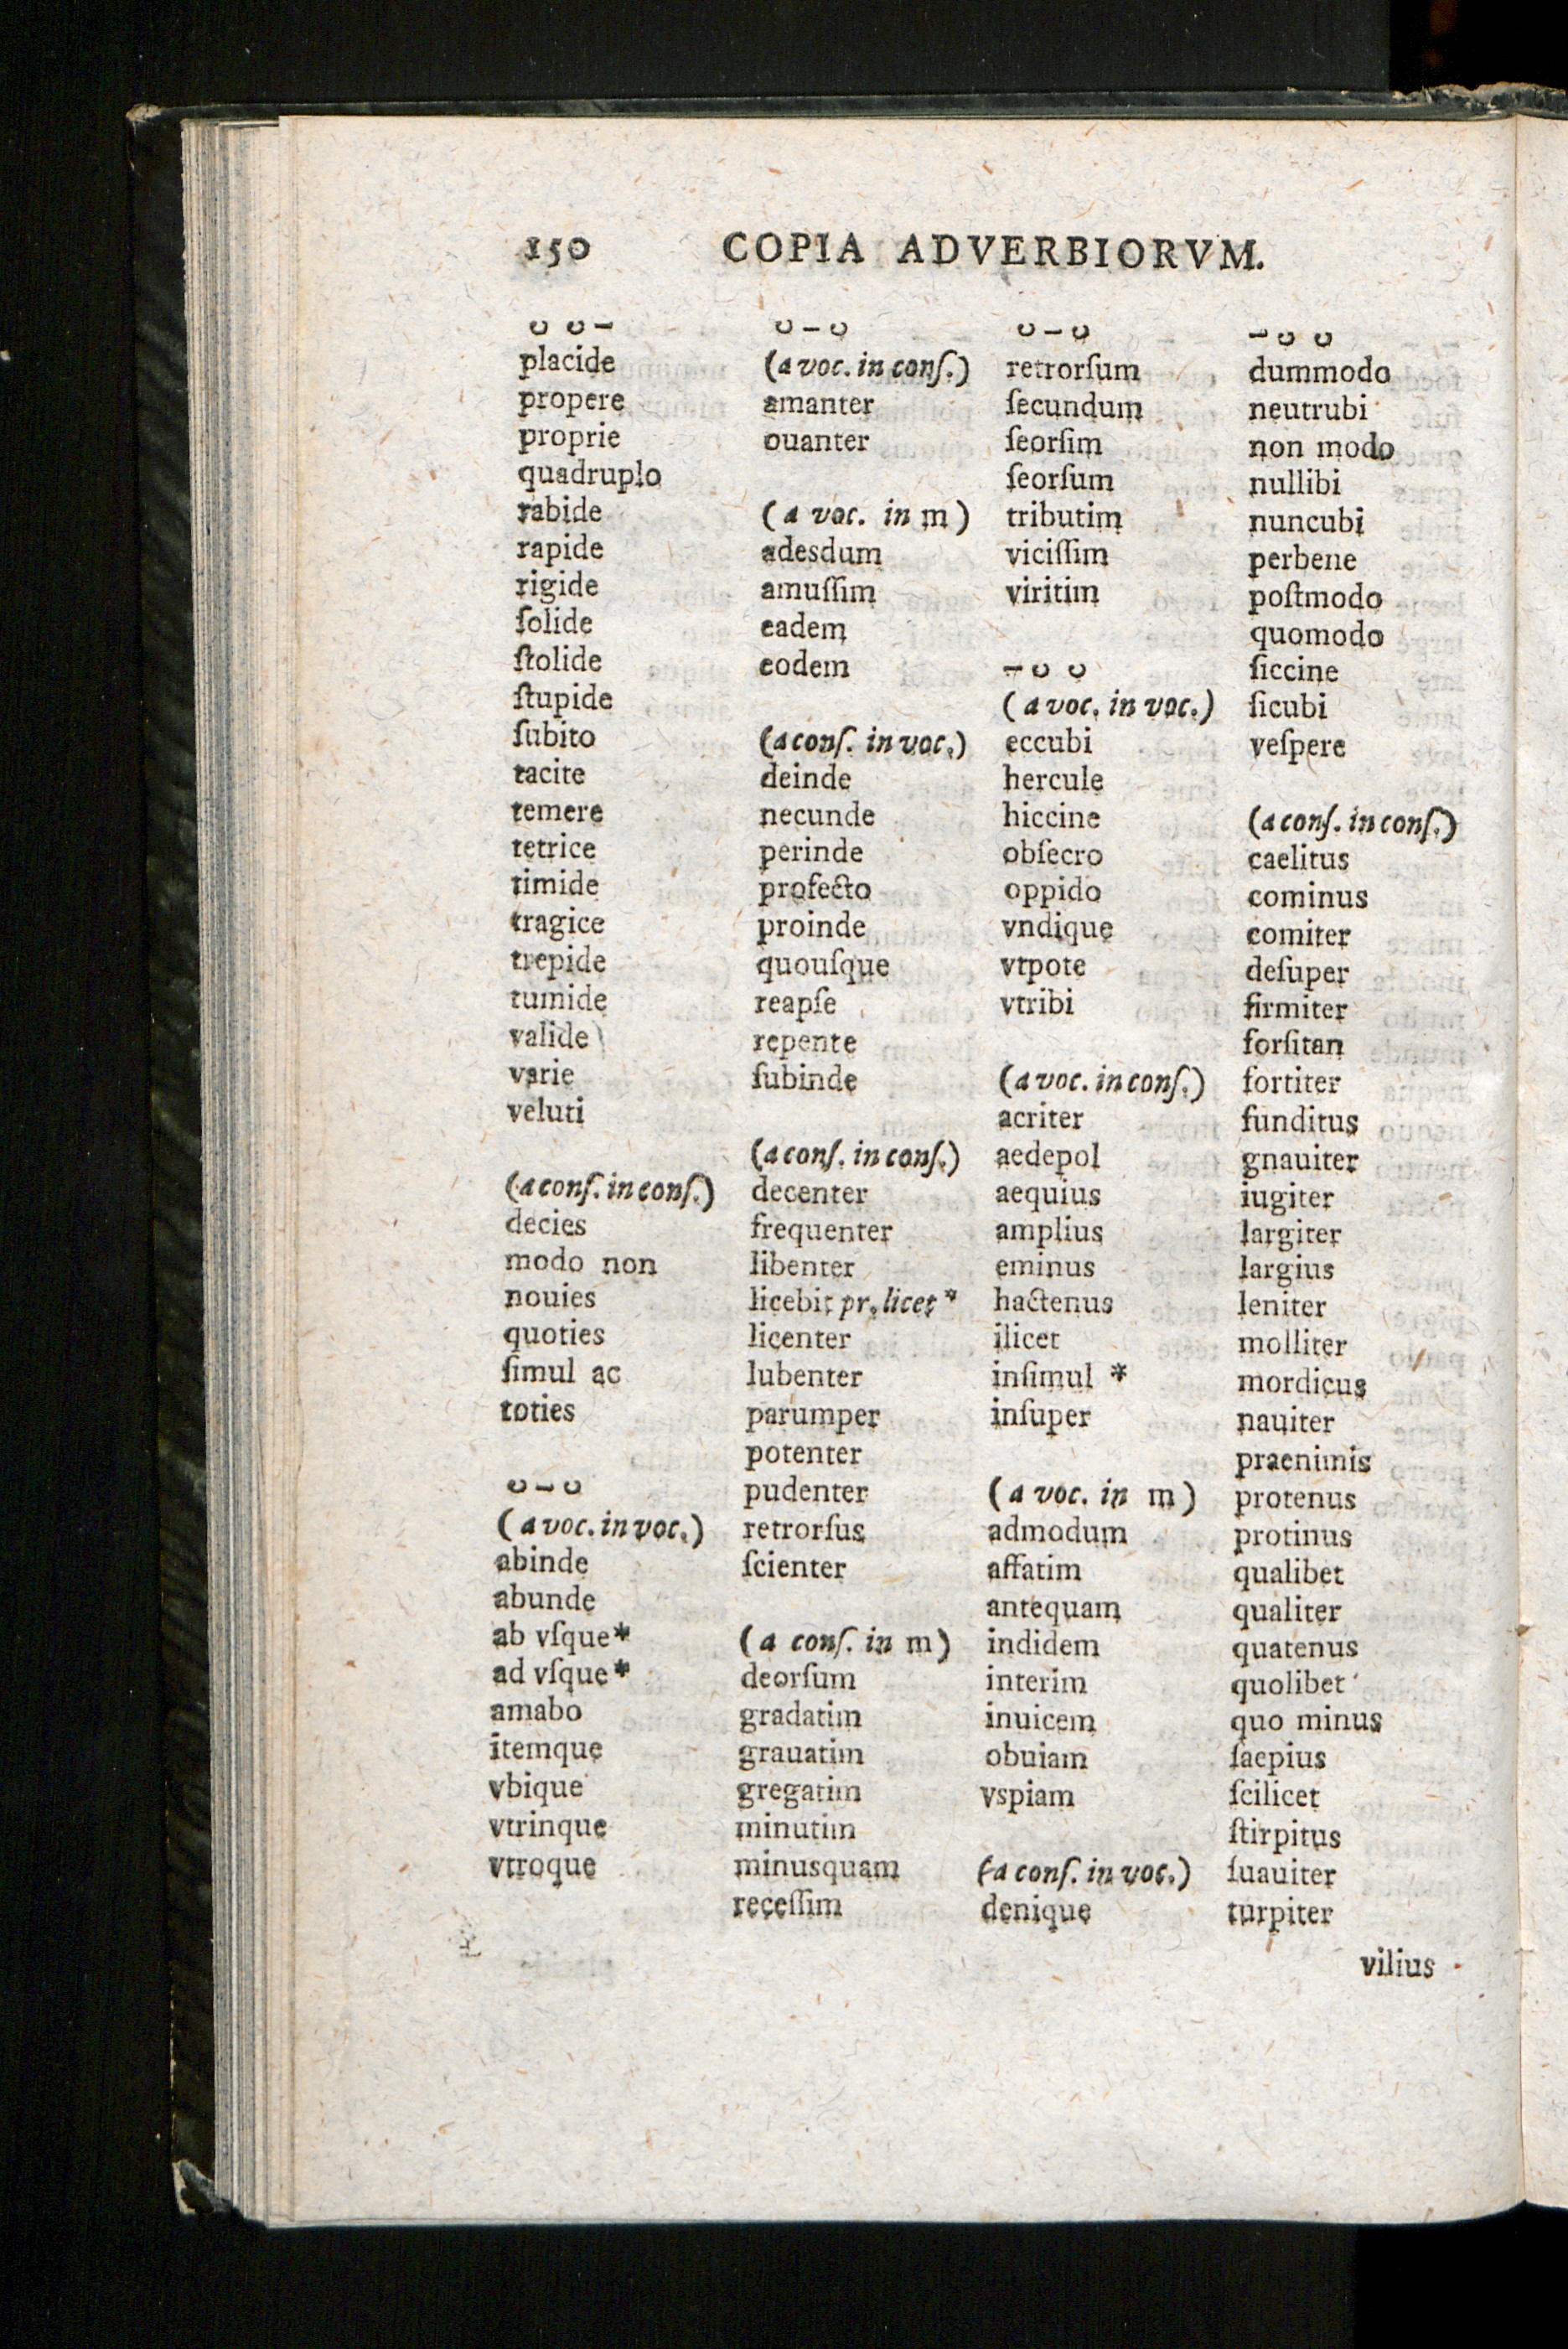 150 COPIA ADVERBIORVM.
◡ ◡ –
placide
propere
proprie
quadruplo
rabide
rapide
rigide
ſolide
ſtolide
ſtupide
ſubito
tacite
temere
tetrice
timide
tragice
trepide
tumide
valide
varie
veluti
(a conſ. in conſ.)
decies
modo non
nouies
quoties
ſimul ac
toties
◡ – ◡
(a voc. in voc.)
abinde
abunde
ab vſque*
ad vſque*
amabo
itemque
vbique
vtrinque
vtroque
◡ – ◡
(a voc. in conſ.)
amanter
ouanter
(a voc. in m)
adesdum
amuſſim
eadem
eodem
(a conſ. in voc.)
deinde
necunde
perinde
profecto
proinde
quouſque
reapſe
repente
ſubinde
(a conſ. in conſ.)
decenter
frequenter
libenter
licebit pr. licet *
licenter
lubenter
parumper
potenter
pudenter
retrorſus
ſcienter
(a conſ. in m)
deorſum
gradatim
grauatim
gregatim
minutim
minusquam
receſſim
◡ – ◡
retrorſum
ſecundum
ſeorſim
ſeorſum
tributim
viciſſim
viritim
– ◡ ◡
(a voc. in voc.)
eccubi
hercule
hiccine
obſecro
oppido
vndique
vtpote
vtribi
(a voc. in conſ.)
acriter
aedepol
aequius
amplius
eminus
hactenus
ilicet
inſimul *
inſuper
(a voc. in m)
admodum
affatim
antequam
indidem
interim
inuicem
obuiam
vspiam
(a conſ. in voc.)
denique
– ◡ ◡
dummodo
neutrubi
non modo
nullibi
nuncubi
perbene
poſtmodo
quomodo
ſiccine
ſicubi
veſpere
(a conſ. in conſ.)
caelitus
cominus
comiter
deſuper
firmiter
forſitan
fortiter
funditus
gnauiter
iugiter
largiter
largius
leniter
molliter
mordicus
nauiter
praenimis
protenus
protinus
qualibet
qualiter
quatenus
quolibet
quo minus
ſaepius
ſcilicet
ſtirpitus
ſuauiter
turpiter
vilius